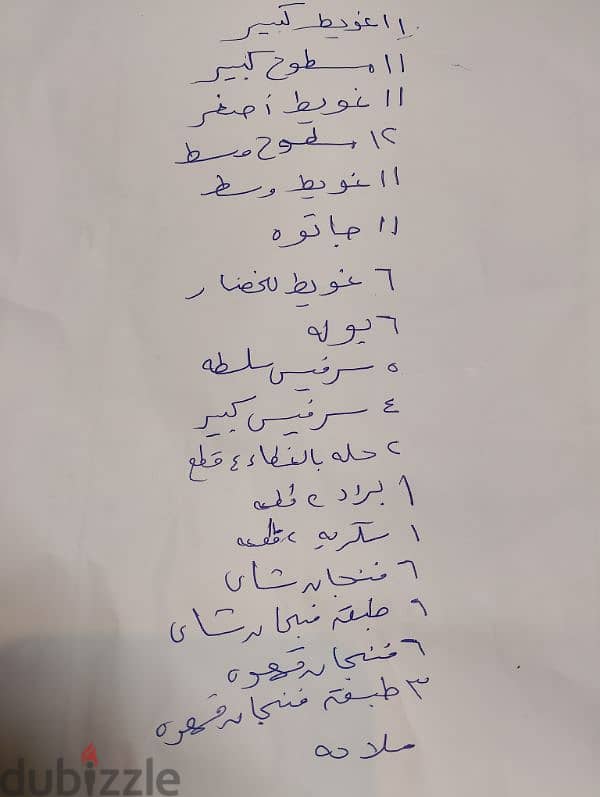 ١١ غويط كبير
١١ مسطوح كبير
١١ غويط أصغر
١٢ مسطوح وسط
١١ غويط وسط
١١ جاتوه
٦ غويط للخضار
٦ بوله
٥ سرفيس سلطه
٤ سرفيس كبير
٢ حله بالغطاء ٤ قطع
١ براد ٢ قطعه
١ سكريه ٢ قطعه
٦ فنجان شاى
٩ طبقة فنجان شاى
٦ فنجان قهوه
٣ طبقة فنجان قهوه
ملاحه
dubizzle